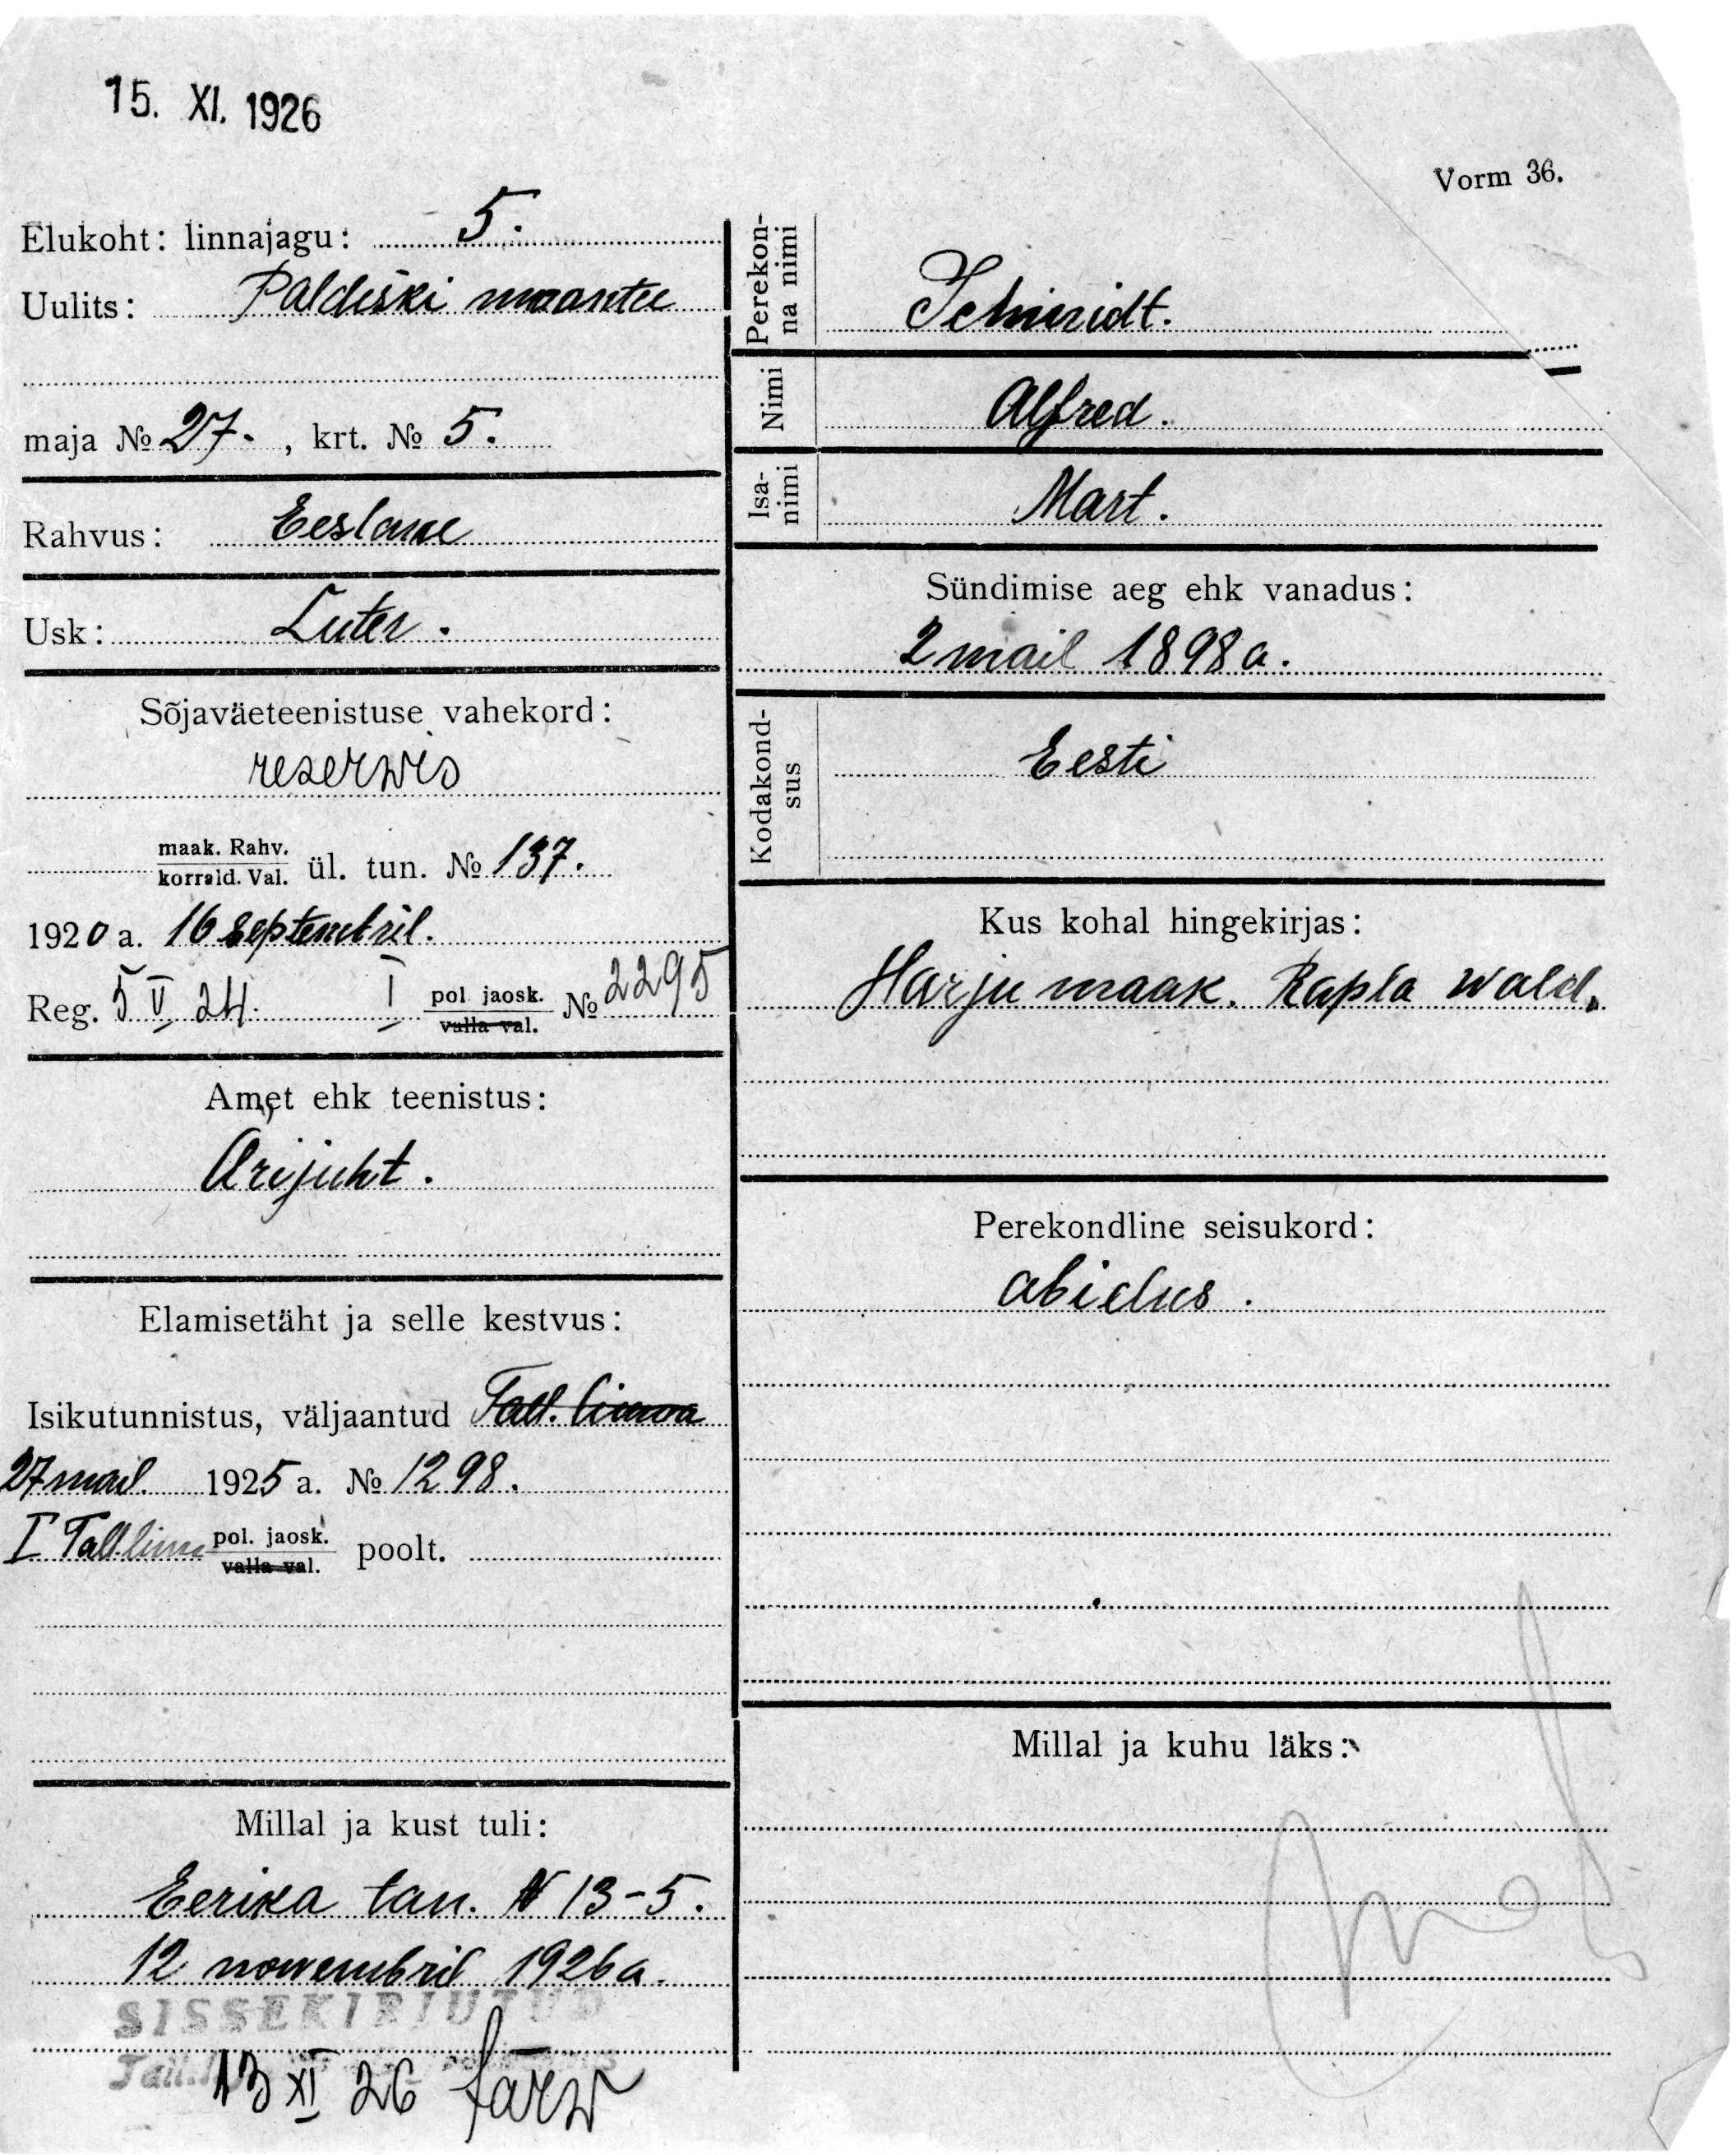 15. XI. 1926
Vorm 36.
Elukoht: linnajagu: 5.
Uulits: Paldiski maantee
maja № 27. , krt. № 5.
Rahvus: Eeslane
Usk: Luter.
Sõjaväeteenistuse vahekord:
reserwis
maak. Rahv.
korraid. Val. ül. tun. № 137.
1920 a. 16 septembril.
Reg. 5 V 24. I pol. jaosk. № 2295
valla val.
Amet ehk teenistus:
Ärijuht.
Elamisetäht ja selle kestvus:
Isikutunnistus, väljaantud Tall. linna
27 mail 1925 a. № 1298.
I Tall. linna pol. jaosk. poolt.
valla val.
Millal ja kust tuli:
Eerika tän. N 13-5.
12 nowembril 1926 a.
SISSEKIRJUTUD
Tall.
13 XI 26
Perekon-
na nimi
Schmidt.
Nimi
Alfred.
Isa-
nimi
Mart.
Sündimise aeg ehk vanadus:
2 mail 1898 a.
Kodakond-
sus
Eesti
Kus kohal hingekirjas:
Harju maak. Rapla wald.
Perekondline seisukord:
abielus.
Millal ja kuhu läks: